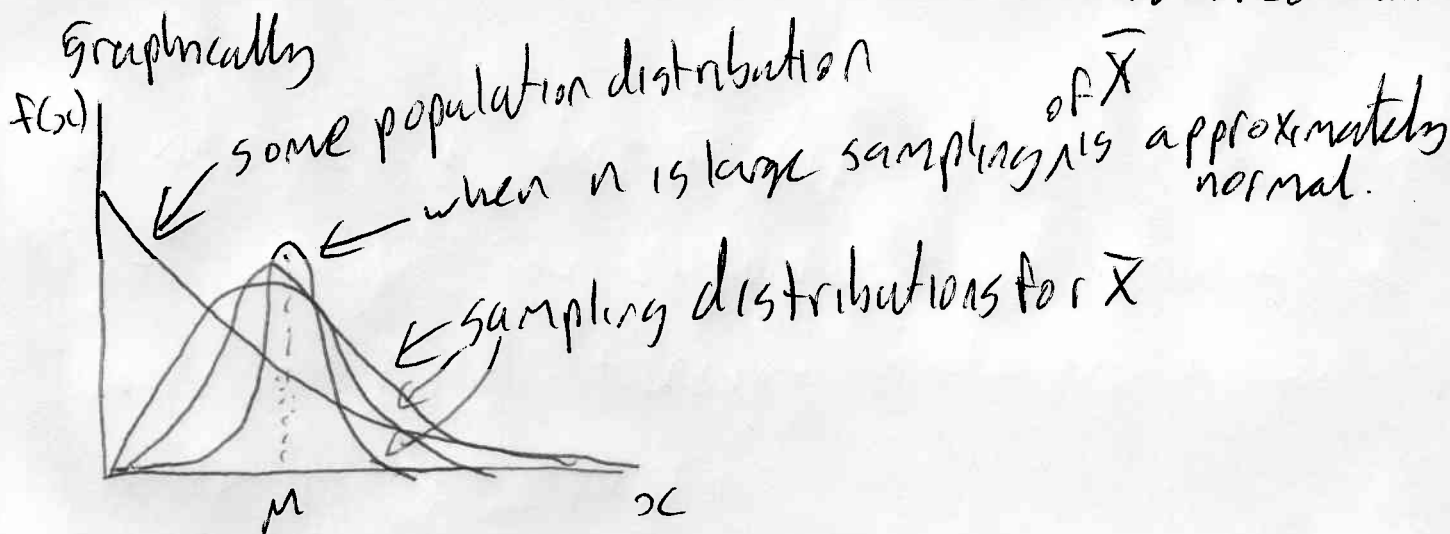 Graphically
f(x)
some population distribution
of X̄
when n is large sampling ∧ is approximately
normal.
sampling distributions for X̄
μ
x